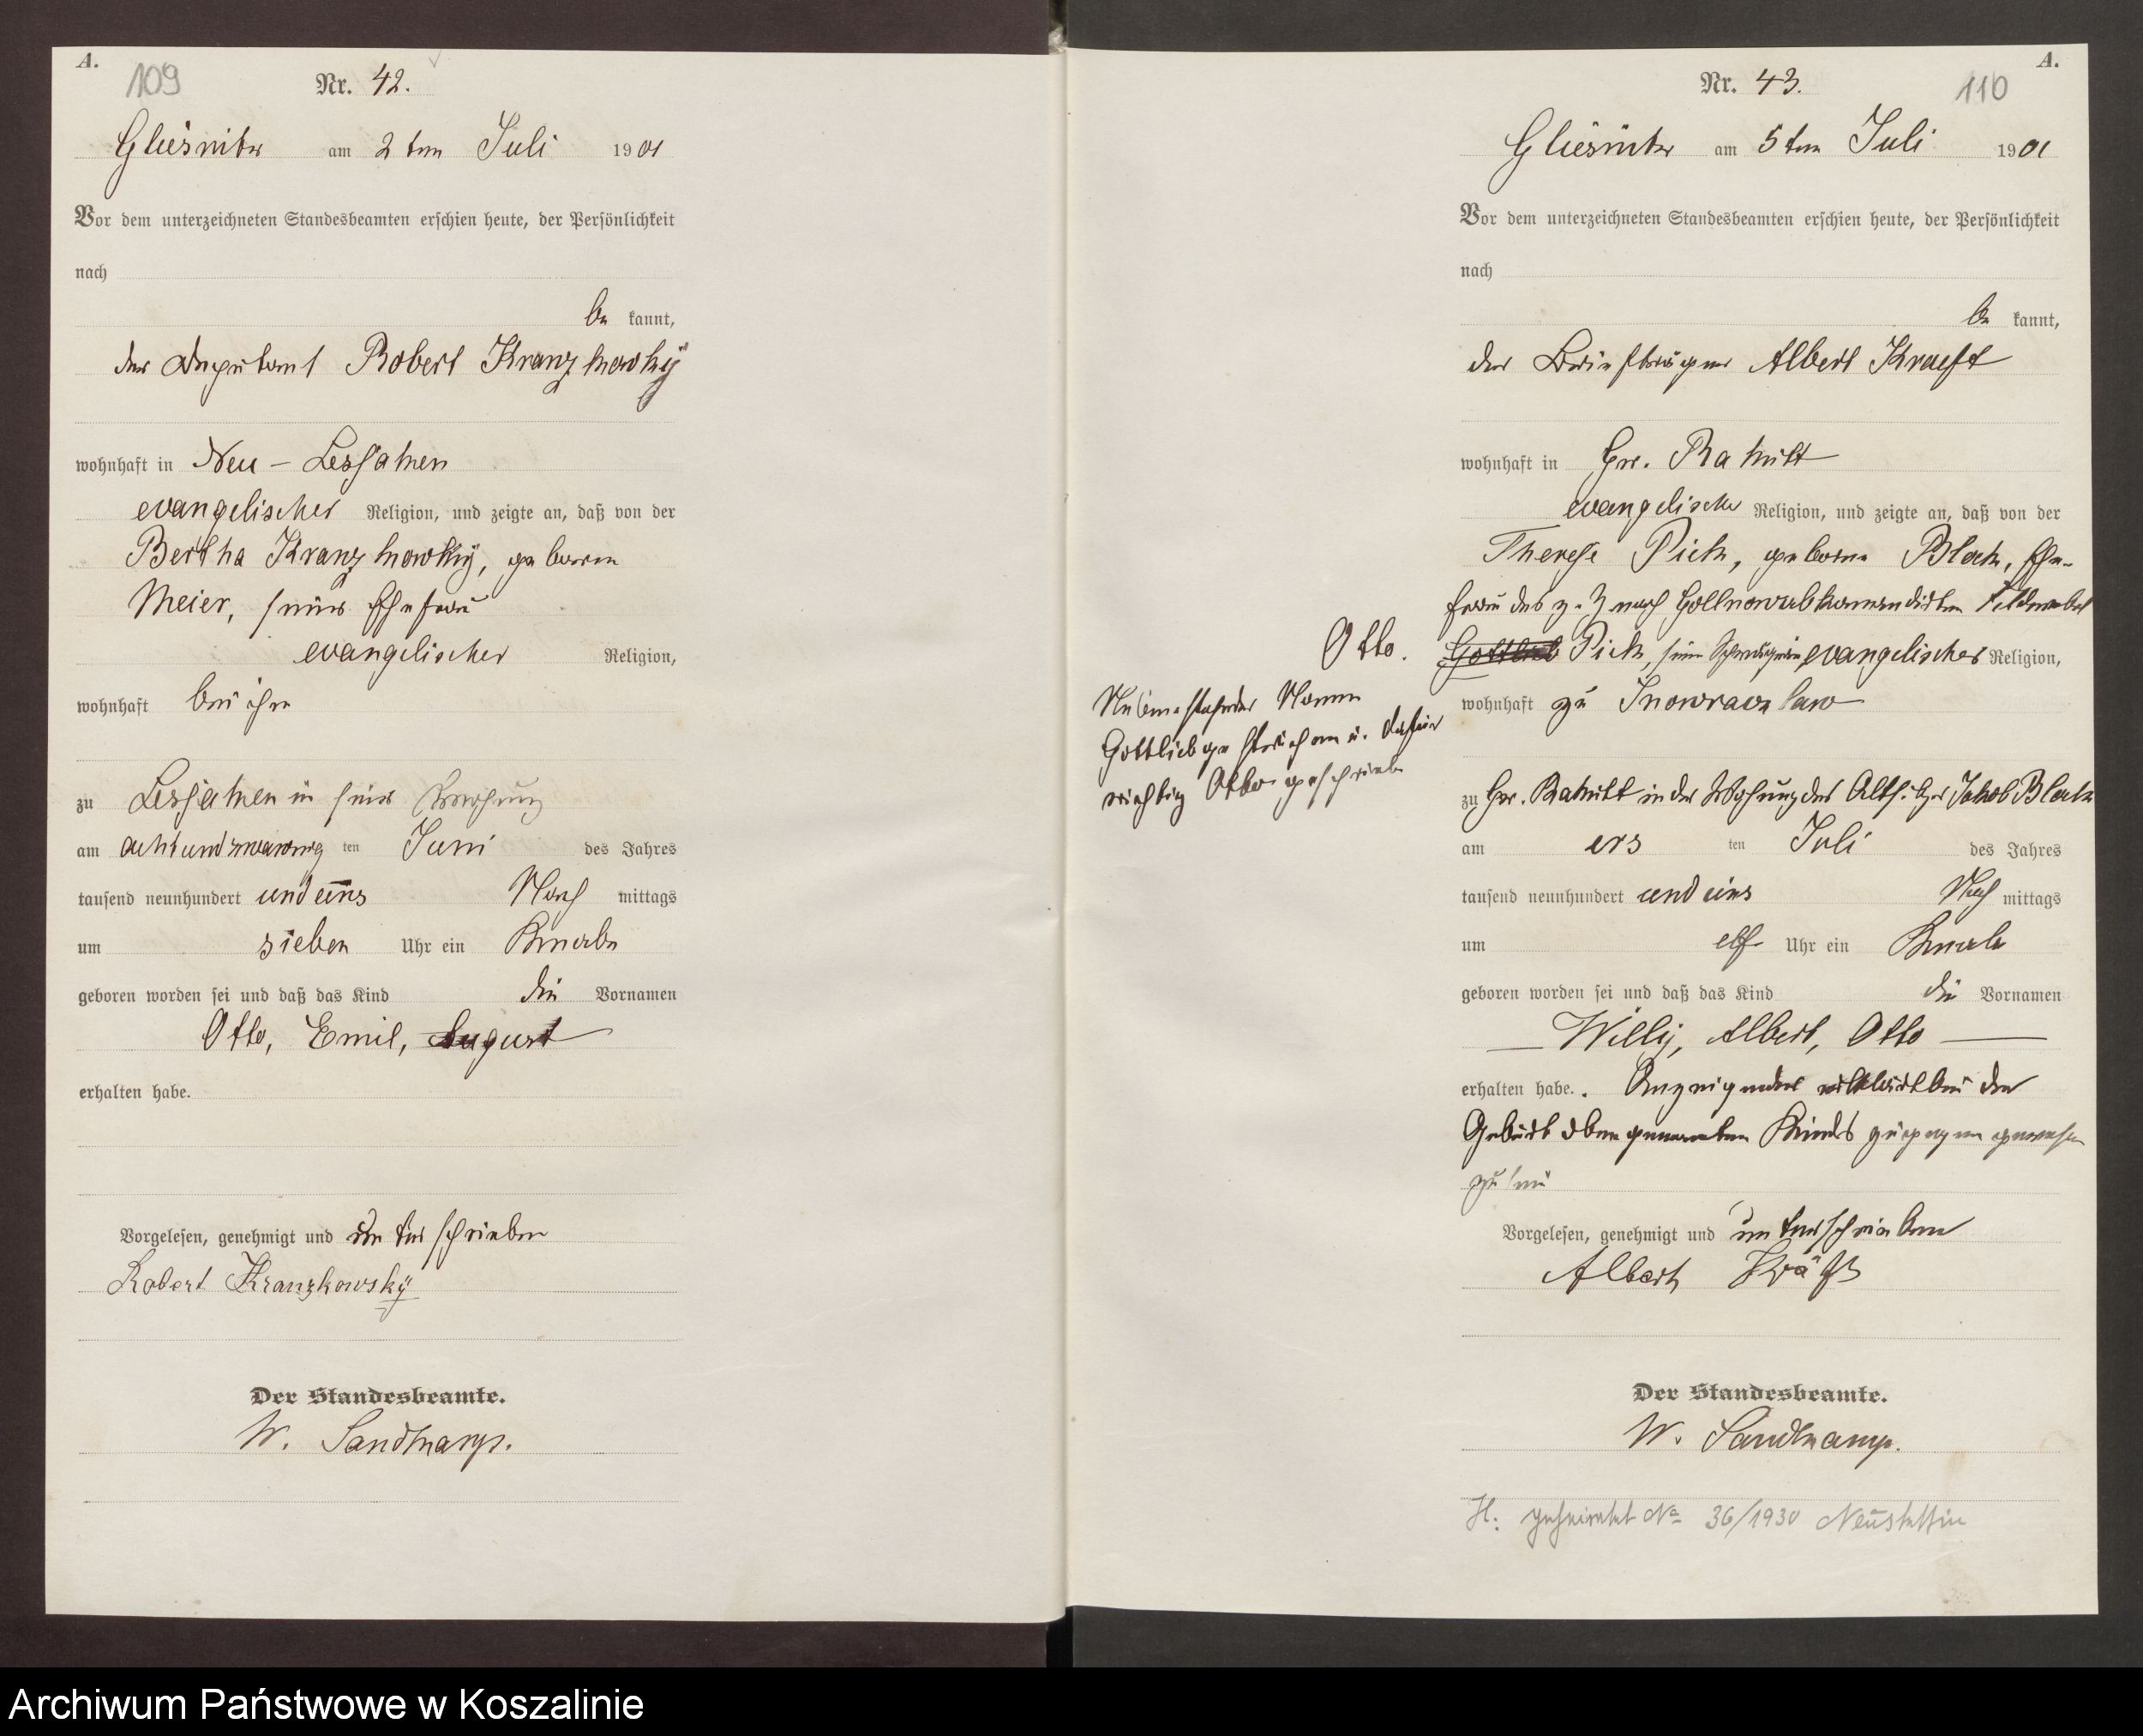 A.
109
Nr. 42.
Gliesnitz am 2ten Juli 1901
Vor dem unterzeichneten Standesbeamten erschien heute, der Persönlichkeit
nach
be kannt,
der Deputant Robert Kranzkowky
wohnhaft in Neu - Lessaken
evangelischer Religion, und zeigte an, daß von der
Bertha Kranzkowky, geborne
Meier, seiner Ehefrau
evangelischer Religion,
wohnhaft bei ihm
zu Lessaken in seiner Wohnung
am achtundzwanzig ten Juni des Jahres
tausend neunhundert und eins Nach mittags
um sieben Uhr ein Knabe
geboren worden sei und daß das Kind die Vornamen
Otto, Emil, August
erhalten habe.
Vorgelesen, genehmigt und unterschrieben
Robert Kranzkowský
Der Standesbeamte.
W. Sandkamp.
A.
Nr. 43.
110
Gliesnitz am 5ten Juli 1901
Vor dem unterzeichneten Standesbeamten erschien heute, der Persönlichkeit
nach
be kannt,
der Briefträger Albert Kraeft
wohnhaft in Gr. Rakitt
evangelischer Religion, und zeigte an, daß von der
Therese Pick, geborne Block, Ehe-
frau des z. Z nach Gollnow abkommandirten Feldwebel
Otto.
Gottlieb Pick, seine Schwägerin evangelischer Religion,
Nebenstehender Name
Gottlieb gestrichen u. dafür
richtig Otto geschrieben
wohnhaft zu Inowrazlaw
zu Gr. Rakitt in der Wohnung des Altsitzer Jakob Block
am ers ten Juli des Jahres
tausend neunhundert und eins Nach mittags
um elf Uhr ein Knabe
geboren worden sei und daß das Kind die Vornamen
Willy, Albert, Otto
erhalten habe. Anzeigender erklärt bei der
Geburt oben genannten Kindes zugegen gewesen
zu sein
Vorgelesen, genehmigt und unterschrieben
Albert Kräft
Der Standesbeamte.
W. Sandkamp.
H: geheiratet No 36/1930 Neustettin
Archiwum Państwowe w Koszalinie